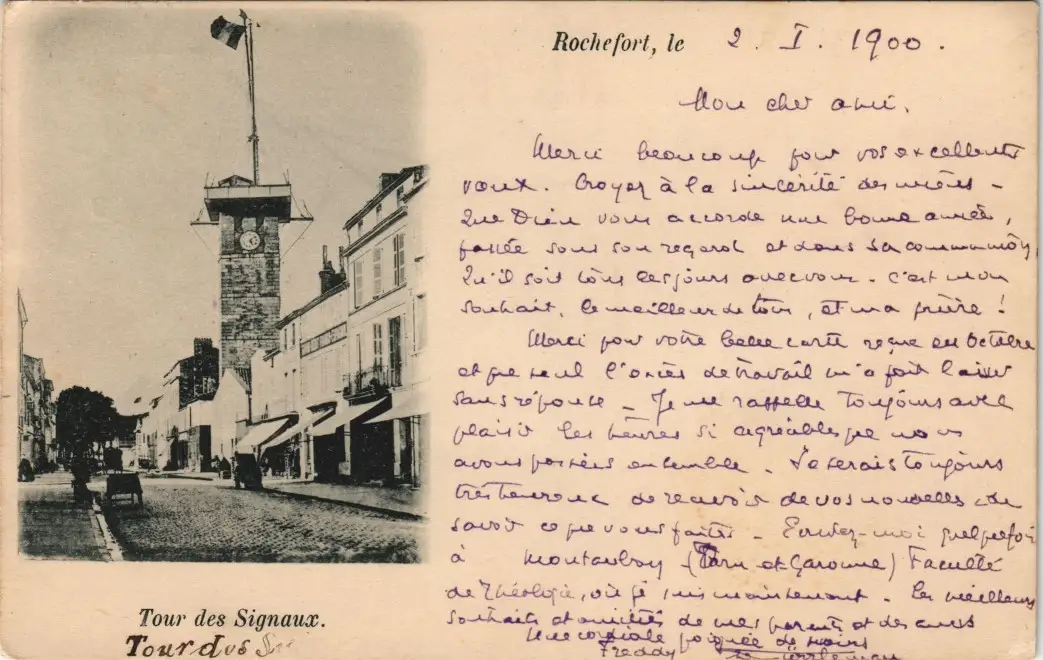 Rochefort, le 2. I. 1900.
Mon cher ami.
Merci beaucoup pour vos excellents
vœux. Croyez à la sincérité des miens -
Que Dieu vous accorde une bonne année,
passée sous son regard et dans sa communion,
Qu'il soit tous les jours avec vous - c'est mon
souhait, le meilleur de tous, et ma prière !
Merci pour votre belle carte reçue en Octobre
et que seul l'excès de travail m'a fait laisser
sans réponse - Je me rappelle toujours avec
plaisir les heures si agréables que nous
avons passées ensemble. Je serais toujours
très heureux de recevoir de vos nouvelles et de
savoir ce que vous faites - Ecrivez-moi quelquefois
à Montauban (Tarn et Garonne) Faculté
de Théologie, où je suis maintenant. Les meilleurs
souhaits et amitiés de mes parents et des amis
Une cordiale poignée de mains
Freddy
Tour des Signaux.
Tour des